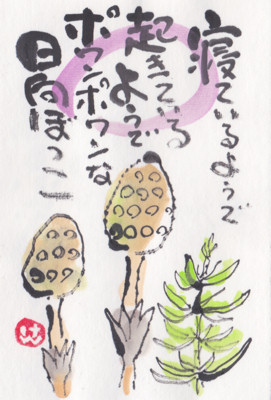 寝ているようで
起きている
ようで
ポワンポワンな
日向ぼっこ